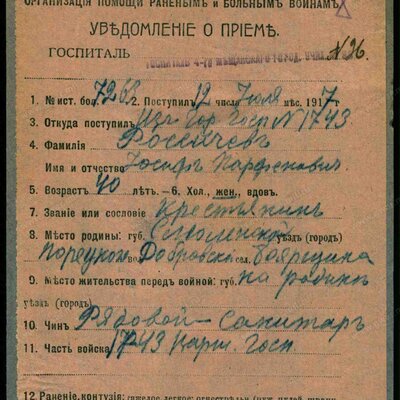 ОРГАНИЗАЦІЯ ПОМОЩИ РАНЕНЫМЪ и БОЛЬНЫМЪ ВОИНАМЪ
УВѢДОМЛЕНІЕ О ПРІЕМѢ.
ГОСПИТАЛЬ ГОСПИТАЛЬ 4-ГО МѢЩАНСКАГО ГОРОД. УЧИЛ. №26.
1. № ист. бол. 7268 2. Поступилъ 12 числа Іюля мѣс. 1917 г
3. Откуда поступилъ Изъ Гор. Госп N 1743
4. Фамилія Россичевъ
Имя и отчество Іосифъ Парфеновичъ.
5. Возрастъ 40 лѣтъ. — 6. Хол., жен., вдовъ.
7. Званіе или сословіе Крестьянинъ
8. Мѣсто родины: губ. Смоленской уѣздъ (городъ)
Порецкой во. Добровска сел. Боярщина
9. Мѣсто жительства передъ войной: губ. на родинѣ
уѣздъ (городъ)
10. Чинъ Рядовой — Санитаръ
11. Часть войска 1743 Госп.
12 Раненіе, контузія: (тяжелое, легкое;